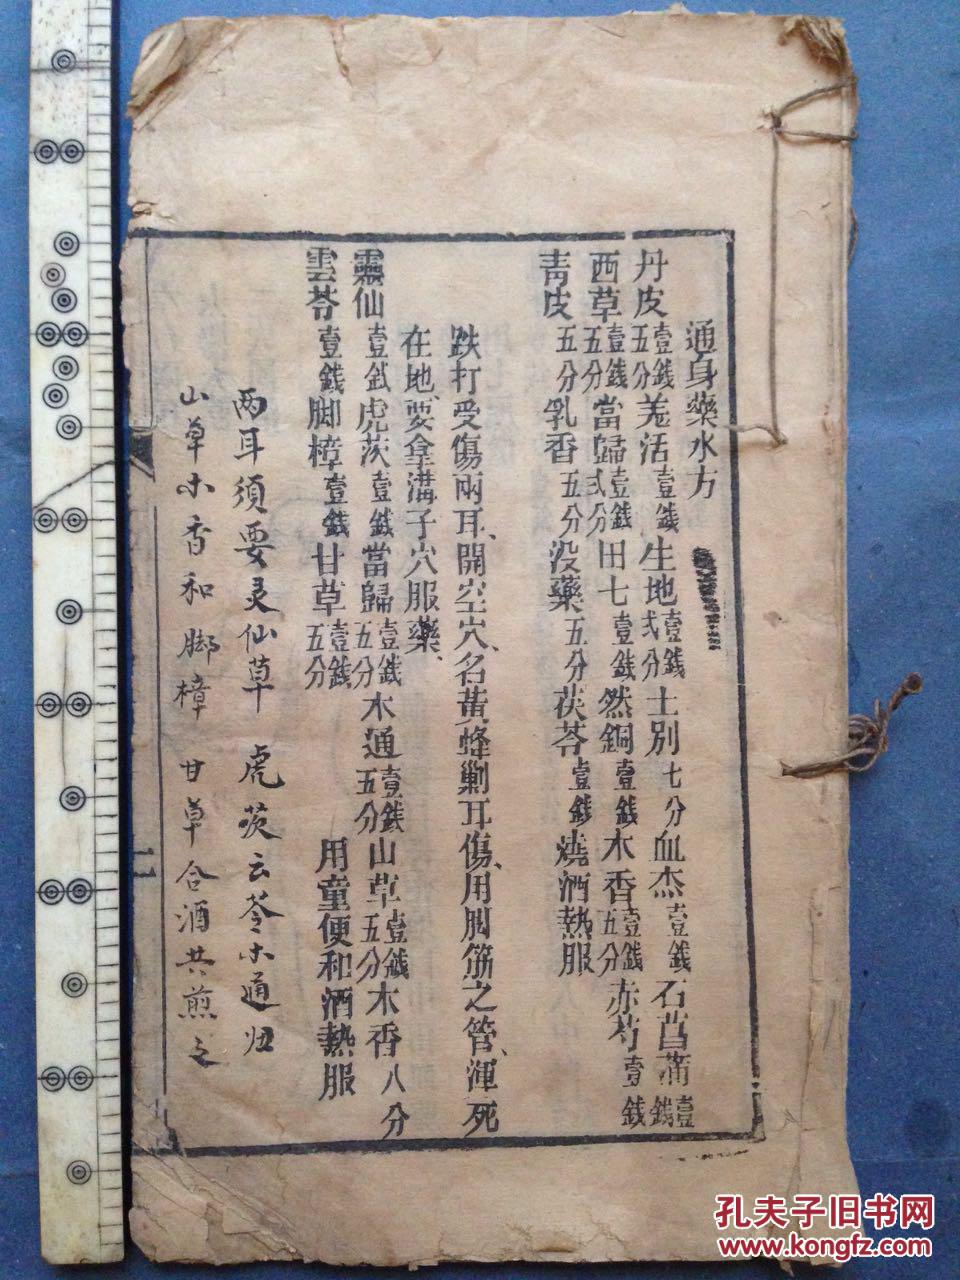 通身藥水方
丹皮壹錢五分羗活壹錢生地壹錢弍分土别七分血杰壹錢石菖蒲壹錢
西草壹錢五分當歸壹錢弍分田七壹錢然銅壹錢木香壹錢五分赤芍壹錢
青皮五分乳香五分没藥五分茯苓壹錢燒酒熱服
跌打受傷兩耳、開空穴、名黄蜂㓨耳傷、用脚筋之管、渾死
在地、要拿溝子穴服藥、
靈仙壹錢虎茨壹錢當歸壹錢五分木通壹錢五分山草壹錢五分木香八分
雲苓壹錢脚樟壹錢甘草壹錢五分用童便和酒熱服
两耳须要灵仙草 虎茨云苓木通归
山草木香和脚樟 甘草合酒共煎之
孔夫子旧书网
www.kongfz.com